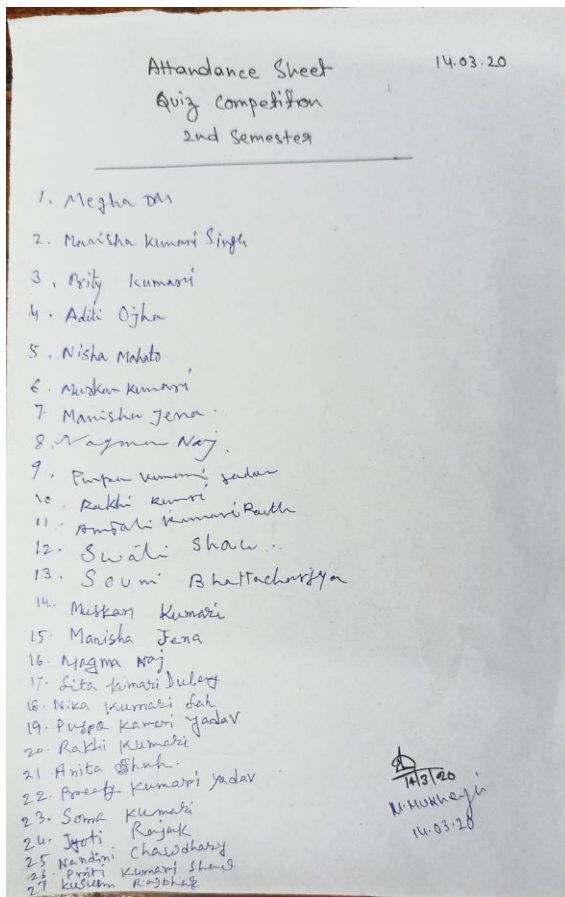 14.03.20
Attandance Sheet
Quiz Competition
2nd Semester
1. Megha Das
2. Manisha Kumari Singh
3. Prity Kumari
4. Aditi Ojha
5. Nisha Mahato
6. Muskan Kumari
7. Manisha Jena.
8. Nagma Naj.
9. Puspa Kumari Yadav
10. Rakhi Kumari
11. Kumari Routh
12. Swati Shaw...
13. Soumi Bhattacharjya
14. Muskan Kumari
15. Manisha Jena
16. Nagma Naj
17. Sita Kumari Dubey
18. Nika Kumari Sah
19. Puspa Kumari Yadav
20. Rakhi Kumari
21 Anita Shuh.
22. Kumari Yadav
23. Soma Kumari
24. Jyoti Rajak
25 Nandini Chawdhary
26. Priti Kumari Shaw
27 Kusum Rajbhar
14/3/20
M. Mukherji
14.03.20